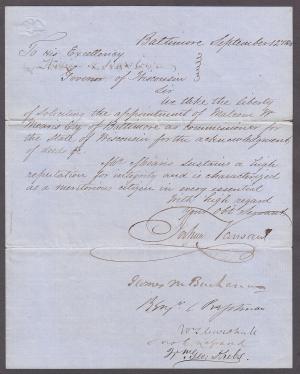 Baltimore September 12th
To His Excellency
Governor of Wisconsin
Sir
We take the liberty
of soliciting the appointment of Malcom W
Mearis Esq of Baltimore as Commissioner for
the State of Wisconsin for the acknowledgment
of deeds &c
Mr Mearis sustains a high
reputation for integrity and is characterized
as a meritorious citizen in every essential
With high regard
Your Obt Servant
Joshua Vansant
James M Buchanan